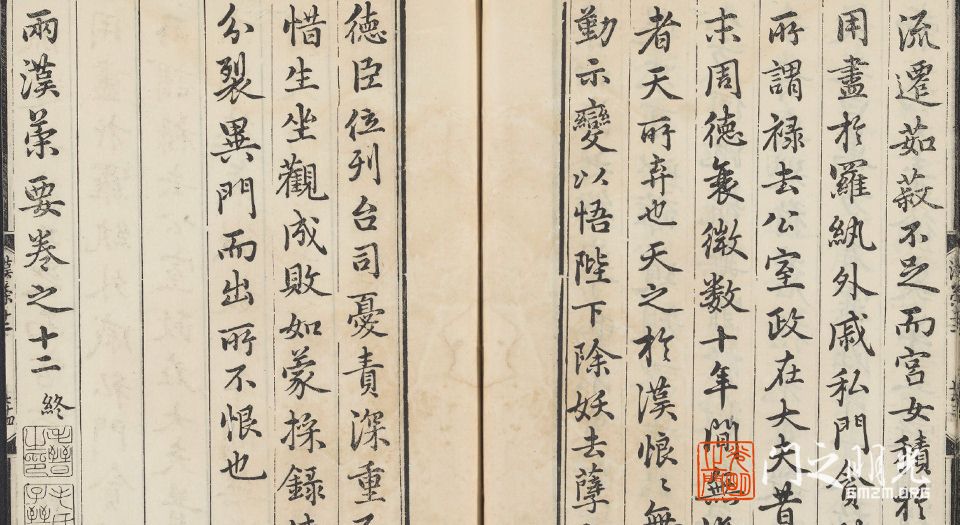 流遷茹菽不足而宮女積於
用盡於羅紈外戚私門貪
所謂祿去公室政在大夫昔
末周德衰微数十年間無
者天所弃也天之於漢悢〻無
勤示變以悟陛下除妖去孽
德臣位列台司憂責深重
惜生坐觀成敗如蒙採錄
分裂異門而出所不恨也
兩漢策要卷之十二 終
GMZM.ORG